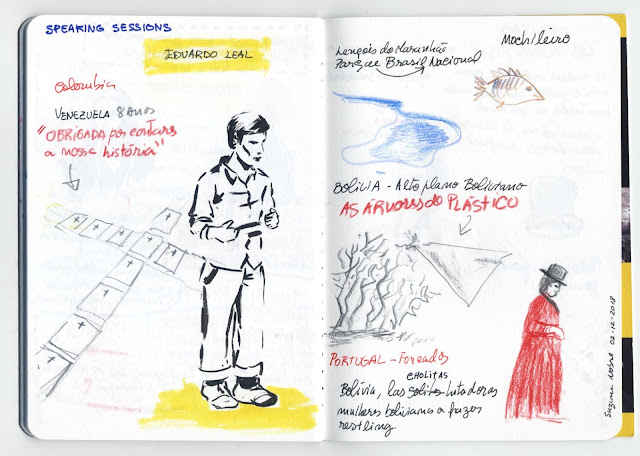 SPEAKING SESSIONS
EDUARDO LEAL
Colombia
VENEZUELA 8 Anos
"OBRIGADA por contares
a nossa história"
Mochileiro
Lençois do Maranhão
Parque Brasil Nacional
BOLIVIA - Alto plano Boliviano
AS ÁRVORES do PLÁSTICO
PORTUGAL - Forcados
CHOLITAS
Bolívia, las lutadoras
mulheres bolivianas a fazer
restling.
Suzana Nobre 02-12-2018